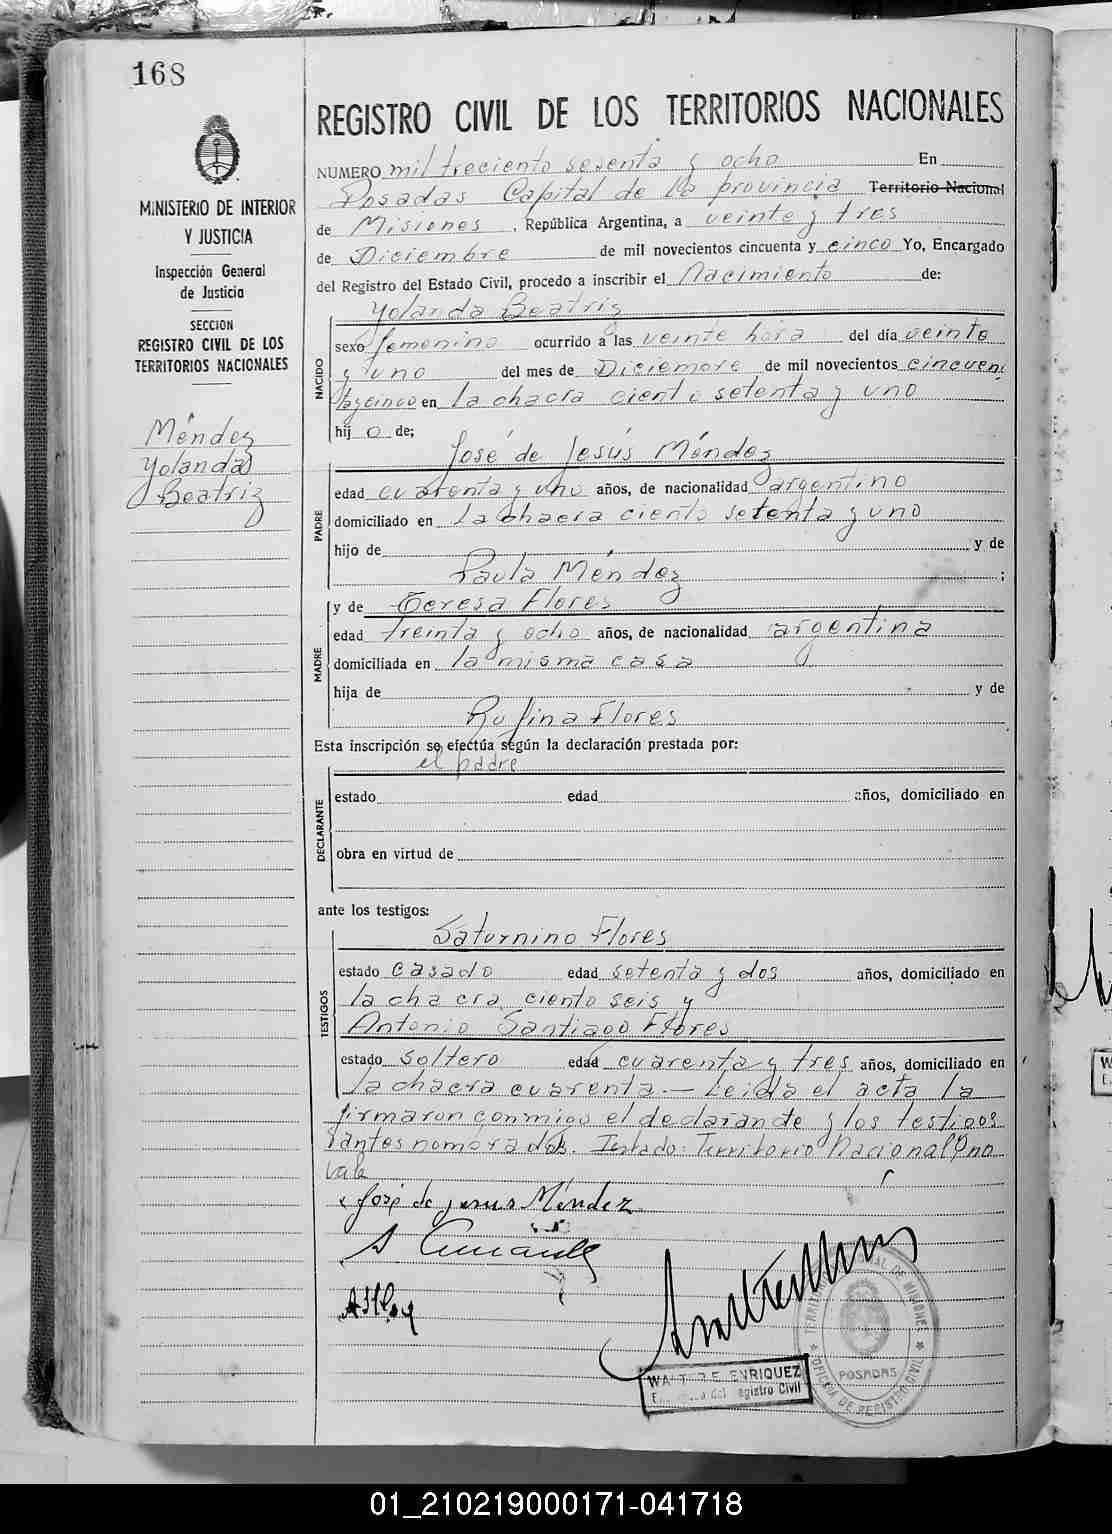 168
MINISTERIO DE INTERIOR
Y JUSTICIA
Inspección General
de Justicia
SECCION
REGISTRO CIVIL DE LOS
TERRITORIOS NACIONALES
Méndez
Yolanda
Beatriz
REGISTRO CIVIL DE LOS TERRITORIOS NACIONALES
NUMERO mil treciento sesenta y ocho En
Posadas Capital de la provincia Territorio Nacional
de Misiones, República Argentina, a veinte y tres
de Diciembre de mil novecientos cincuenta y cinco Yo, Encargado
del Registro del Estado Civil, procedo a inscribir el Nacimiento de:
Yolanda Beatriz
NACIDO
sexo femenino ocurrido a las veinte hora del día veinte
y uno del mes de Diciembre de mil novecientos cincuen
taycinco en la chacra ciento setenta y uno
hij a de;
José de Jesús Méndez
PADRE
edad cuarenta y uno años, de nacionalidad argentino
domiciliado en la chacra ciento setenta y uno
hijo de y de
Paula Méndez ;
MADRE
y de Teresa Flores
edad treinta y ocho años, de nacionalidad argentina
domiciliada en la misma casa
hija de y de
Rufina Flores
Esta inscripción se efectúa según la declaración prestada por:
el padre
DECLARANTE
estado edad años, domiciliado en
obra en virtud de
ante los testigos:
Saturnino Flores
TESTIGOS
estado casado edad setenta y dos años, domiciliado en
la chacra ciento seis y
Antonio Santiago Flores
estado soltero edad cuarenta y tres años, domiciliado en
la chacra cuarenta.— Leida el acta la
firmaron conmigo el declarante y los testigos
antes nombrados. Testado: Territorio Nacional: no
vale
José de Jesus Méndez
WALT R E. ENRIQUEZ
Registro Civil
TERRITORIO NACIONAL DE MISIONES
OFICINA DE REGISTRO CIVIL
POSADAS
01_210219000171-041718